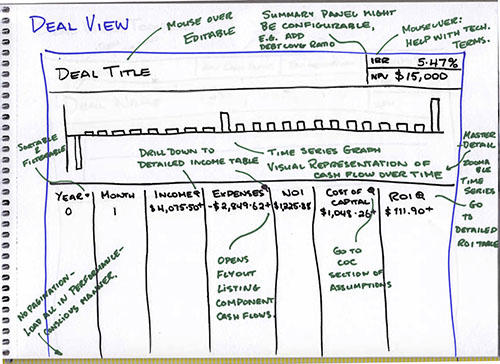 DEAL VIEW
MOUSE OVER
EDITABLE
SUMMARY PANEL MIGHT
BE CONFIGURABLE,
E.G. ADD
DEBT COVG RATIO
MOUSEOVER:
HELP WITH TECH.
TERMS.
DEAL TITLE
IRR 5.47%
NPV $15,000
SORTABLE
&
FILTERABLE
DRILL DOWN TO
DETAILED INCOME TABLE
TIME SERIES GRAPH
VISUAL REPRESENTATION OF
CASH FLOW OVER TIME
MASTER
DETAIL
ZOOMA
BLE
TIME
SERIES
YEAR MONTH INCOME EXPENSES NOI COST OF CAPITAL ROI
0 1 $4,075.50+ -$2,849.62+ $1,225.88 $1,048.26+ $111.90+
GO
TO
DETAILED
ROI TABLE
OPENS
FLYOUT
LISTING
COMPONENT
CASH FLOWS.
GO TO
COC
SECTION OF
ASSUMPTIONS
NO PAGINATION-
LOAD ALL IN PERFORMANCE-
CONSCIOUS MANNER.